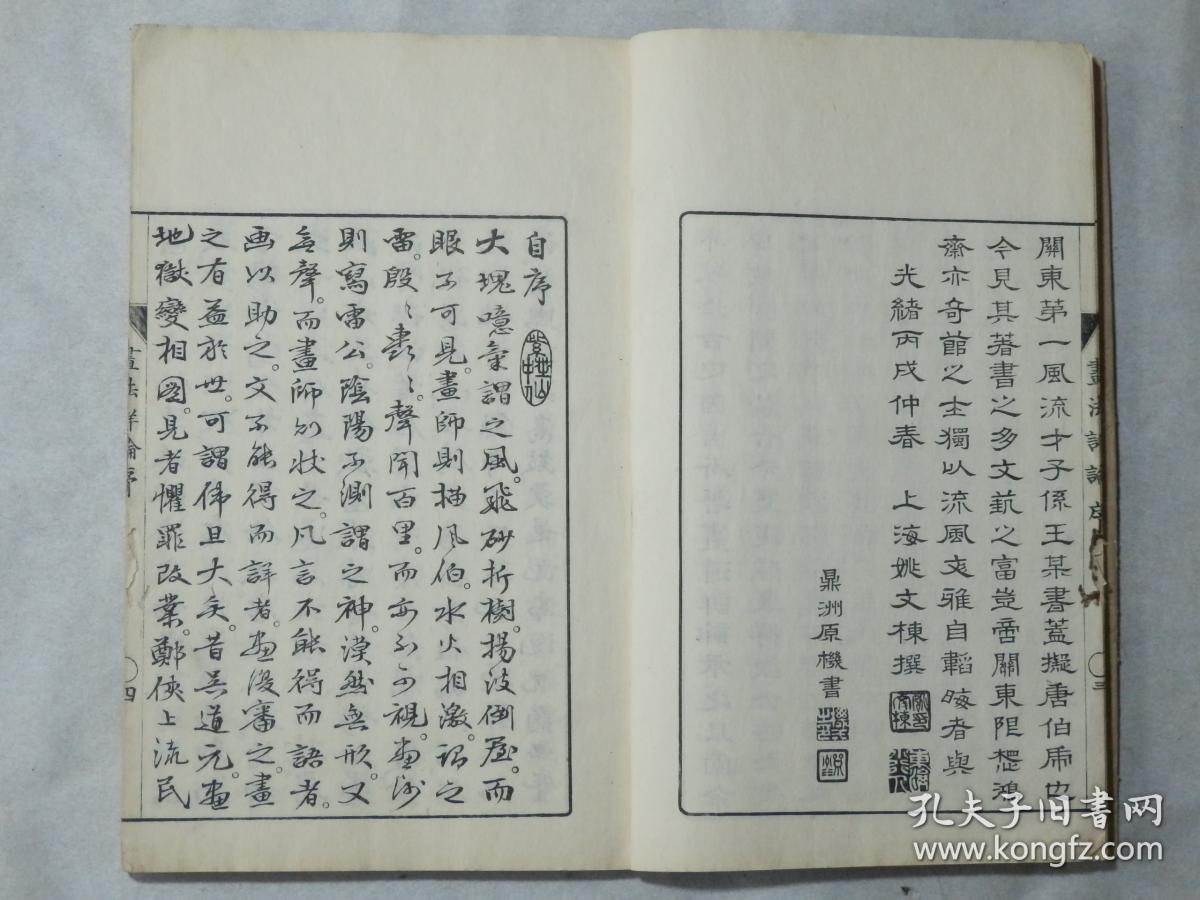 關東第一風流才子係王某書蓋擬唐伯虎也
今見其著書之多文藝之富豈啻關東陧櫪鴻
齋亦奇館之士獨以流風文雅自韜晦者與
光緒丙戌仲春 上海姚文棟撰
鼎洲原機書
畫法詳論序
三
自序
大塊噫氣謂之風。飛砂折樹。揚波倒屋。而
眼不可見。畫師則描風伯。水火相激。謂之
雷。殷〻轟〻。聲聞百里。而亦不可視。畫師
則寫雷公。陰陽不測謂之神。漠然無形。又
無聲。而畫師能狀之。凡言不能得而語者。
画以助之。文不能得而詳者。畫後審之。畫
之有益於世。可謂偉且大矣。昔吳道元。畫
地獄變相圖。見者懼罪改業。鄭俠上流民
畫法詳論序
四
孔夫子旧书网
www.kongfz.com